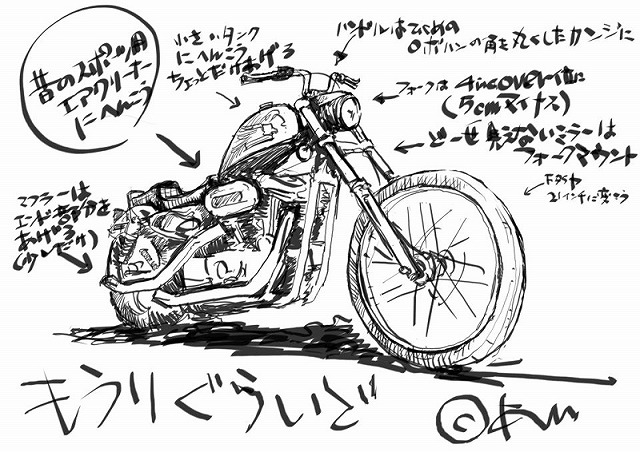 昔のスポーツ用
エアクリーナー
にへんこう
小さいタンク
にへんこう
ちょっとだけあげる
ハンドルは
ロボハンの角を丸くしたカンジに
フォークは 4incover位に
(5cmマイナス)
どーせ見えないミラーは
フォークマウント
21インチに変更
マフラーは
エンド部分を
あげる
(少しだけ)
もうりぐらいど
©